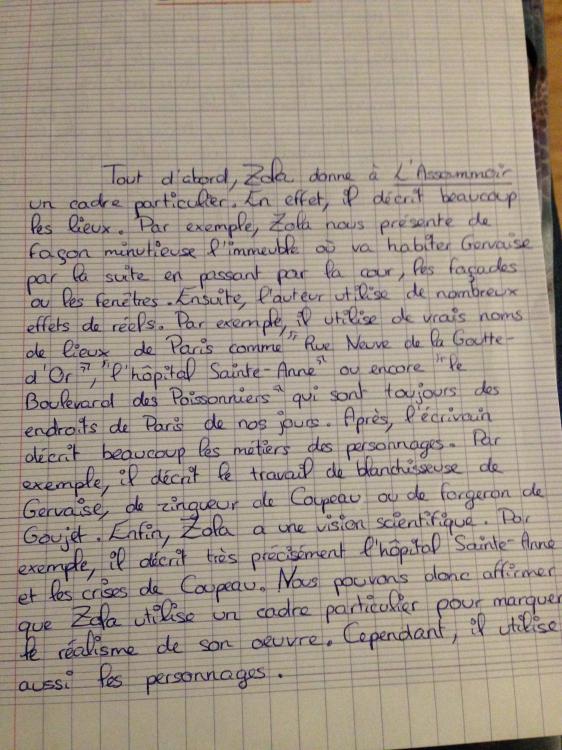 Tout d'abord, Zola donne à L'Assommoir
un cadre particulier. En effet, il décrit beaucoup
les lieux. Par exemple, Zola nous présente de
façon minutieuse l'immeuble où va habiter Gervaise
par la suite en passant par la cour, les façades
ou les fenêtres. Ensuite, l'auteur utilise de nombreux
effets de réels. Par exemple, il utilise de vrais noms
de lieux de Paris comme "Rue Neuve de la Goutte-
d'Or", "l'hôpital Sainte-Anne" ou encore "le
Boulevard des Poissonniers" qui sont toujours des
endroits de Paris de nos jours. Après, l'écrivain
décrit beaucoup les métiers des personnages. Par
exemple, il décrit le travail de blanchisseuse de
Gervaise, de zingueur de Coupeau ou de forgeron de
Goujet. Enfin, Zola a une vision scientifique. Par
exemple, il décrit très précisément l'hôpital Sainte-Anne
et les crises de Coupeau. Nous pouvons donc affirmer
que Zola utilise un cadre particulier pour marquer
le réalisme de son oeuvre. Cependant, il utilise
aussi les personnages.